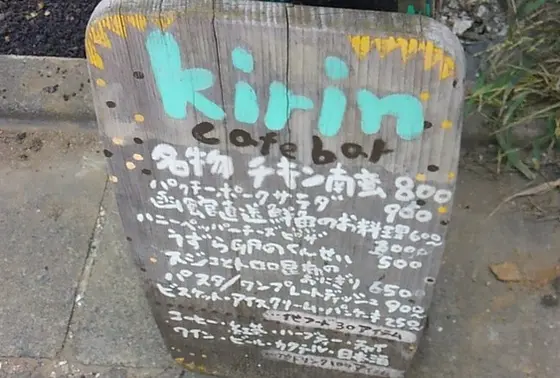 kirin
cafe bar
名物 チキン南蛮 800
パクチーポークサラダ 900
函館直送鮮魚のお料理 600〜
ハニーペッパーチーズピザ 800
うずら卵のくんせい 500
スジコととろろ昆布の
おにぎり 650
パスタ/ワンプレートディッシュ 900〜
ビスケット・アイスクリーム・パンケーキ 250〜
他フード30アイテム
コーヒー・紅茶・ハーブティー
ワイン・ビール・カクテル・日本酒